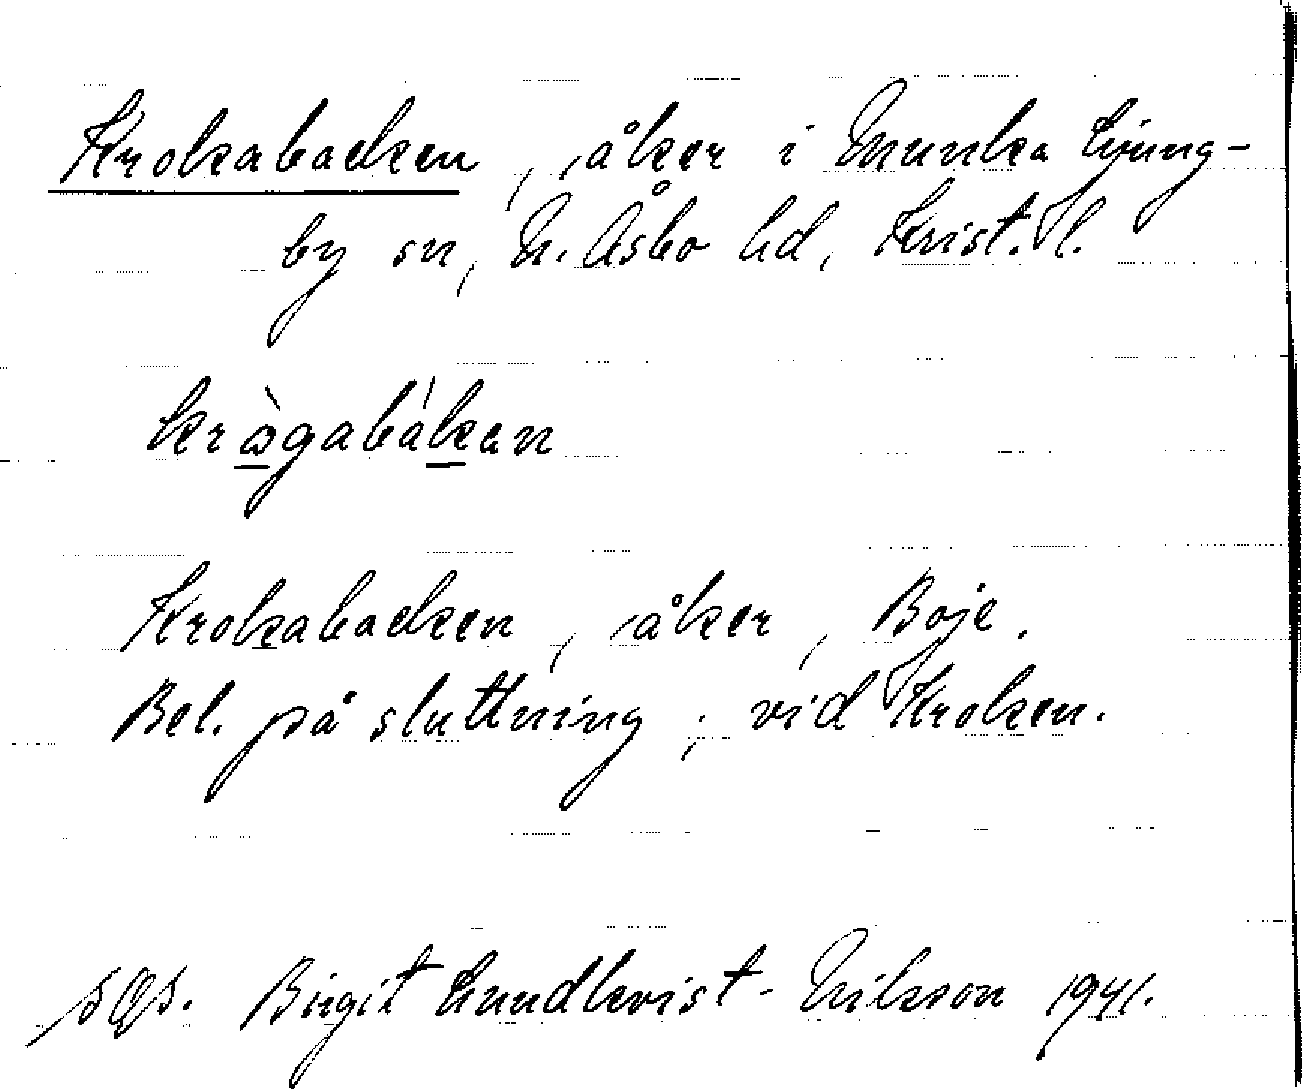 Krokabacken, åker i Munka Ljung-
by sn, N. Åsbo hd, Krist. l.
krɷ̀gabák̲an
Krokabacken, åker, Boje.
Bel. på sluttning, vid Kroken.
Birgit Lundkvist-Nilsson 1941.